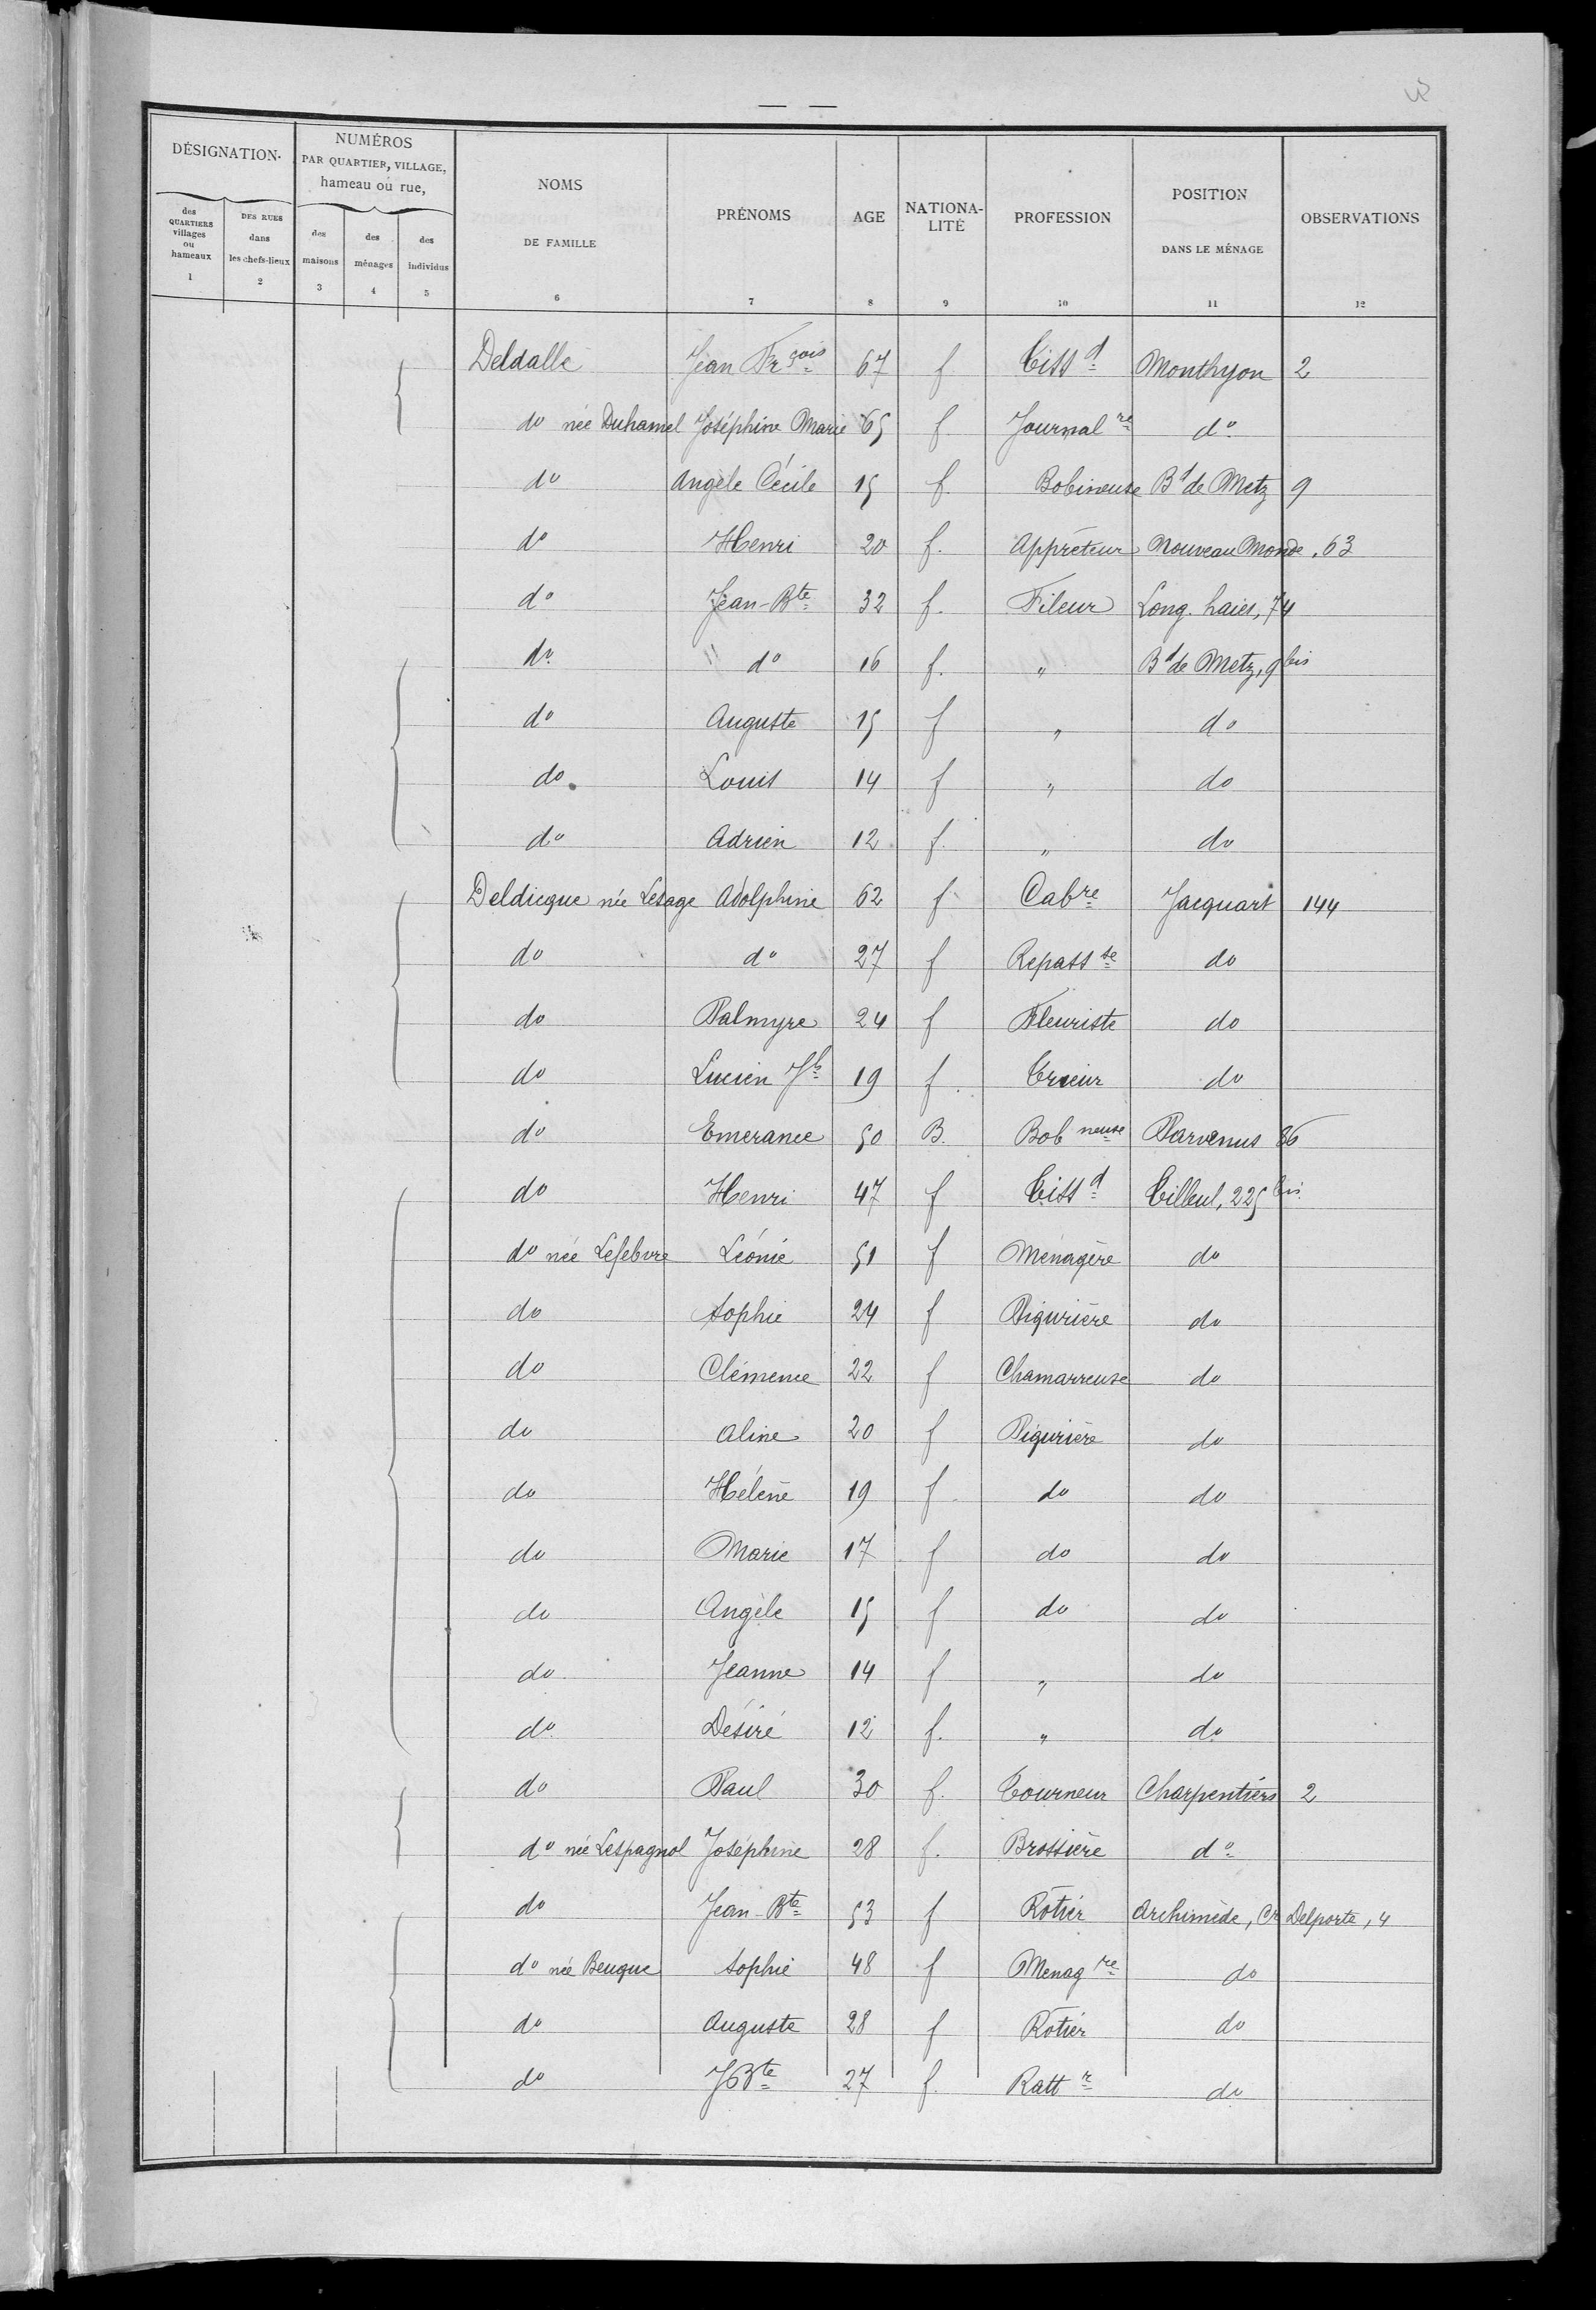 DÉSIGNATION
NUMÉROS PAR QUARTIER, VILLAGE, hameau ou rue,
des QUARTIERS villages ou hameaux 1
DES RUES dans les chefs-lieux 2
des maisons 3
des ménages 4
des individus 5
NOMS DE FAMILLE 6
PRÉNOMS 7
AGE 8
NATIONALITÉ 9
PROFESSION 10
POSITION DANS LE MÉNAGE 11
OBSERVATIONS 12
Deldalle Jean Frçois 67 f Tissd Monthyon 2
do née Duhamel Joséphine Marie 65 f Journalre do
do Angèle Cécile 15 f. Bobineuse Bd de Metz 9
do Henri 20 f. Apprêteur Nouveau Monde, 63
do Jean-Bte 32 f. Fileur Long. haies, 74
do " do 16 f. " Bd de Metz, 9 bis
do Auguste 15 f " do
do Louis 14 f " do
do Adrien 12 f. " do
Deldicque née Lesage Adolphine 62 f Cabre Jacquart 144
do do 27 f Repassse do
do Palmyre 24 f Fleuriste do
do Lucien Jh 19 f. Trieur do
do Emerance 50 B. Bobneuse Parvenus 86
do Henri 47 f Tissd Tilleul, 225 bis
do née Lefebvre Léonie 51 f Ménagère do
do Sophie 24 f Piqurière do
do Clémence 22 f Chamarreuse do
do Aline 20 f Piqurière do
do Hélène 19 f. do do
do Marie 17 f do do
do Angèle 15 f do do
do Jeanne 14 f " do
do Désiré 12 f. " do
do Paul 30 f. Tourneur Charpentiers 2
do née Lespagnol Joséphine 28 f. Brossière do
do Jean-Bte 53 f Rôtier Archimède, Cr Delporte, 4
do née Beugue Sophie 48 f Menagre do
do Auguste 28 f Rôtier do
do JBte 27 f. Rattr do